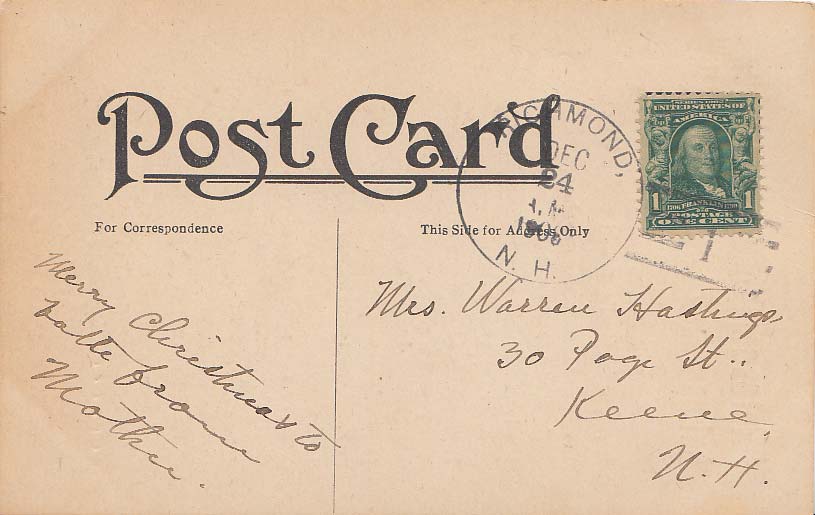 Post Card
For Correspondence
This Side for Address Only
RICHMOND,
DEC
24
A.M
N. H.
SERIES 1902
UNITED STATES OF
AMERICA
1 FRANKLIN 1
POSTAGE
ONE CENT
1
Merry Christmas to
from
Mother.
Mrs. Warren Hastings
30 Page St..
Keene,
N. H.